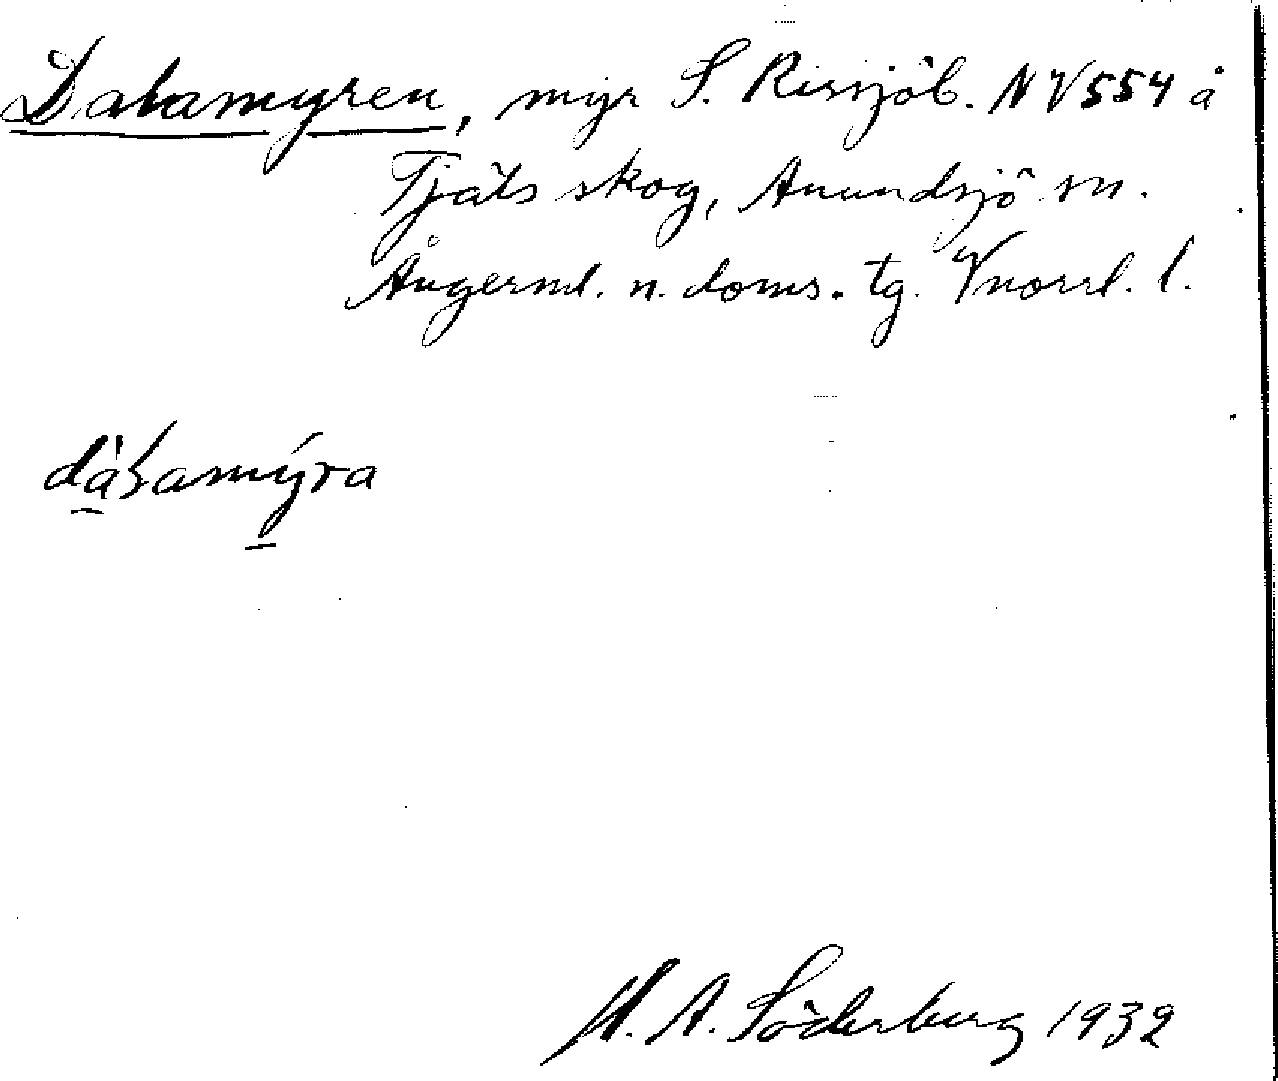 Dalamyren, myr S. Rissjöb. NV554 å
Tjäls skog, Anundsjö sn.
Ångerml. n. doms. tg. Vnorrl. l.
dàlamýra
A. Söderberg 1932